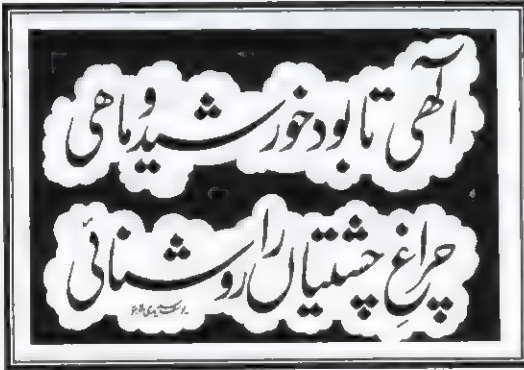 الٰهی تا بود خورشید و ماهی
چراغِ چشتیاں را روشنائی